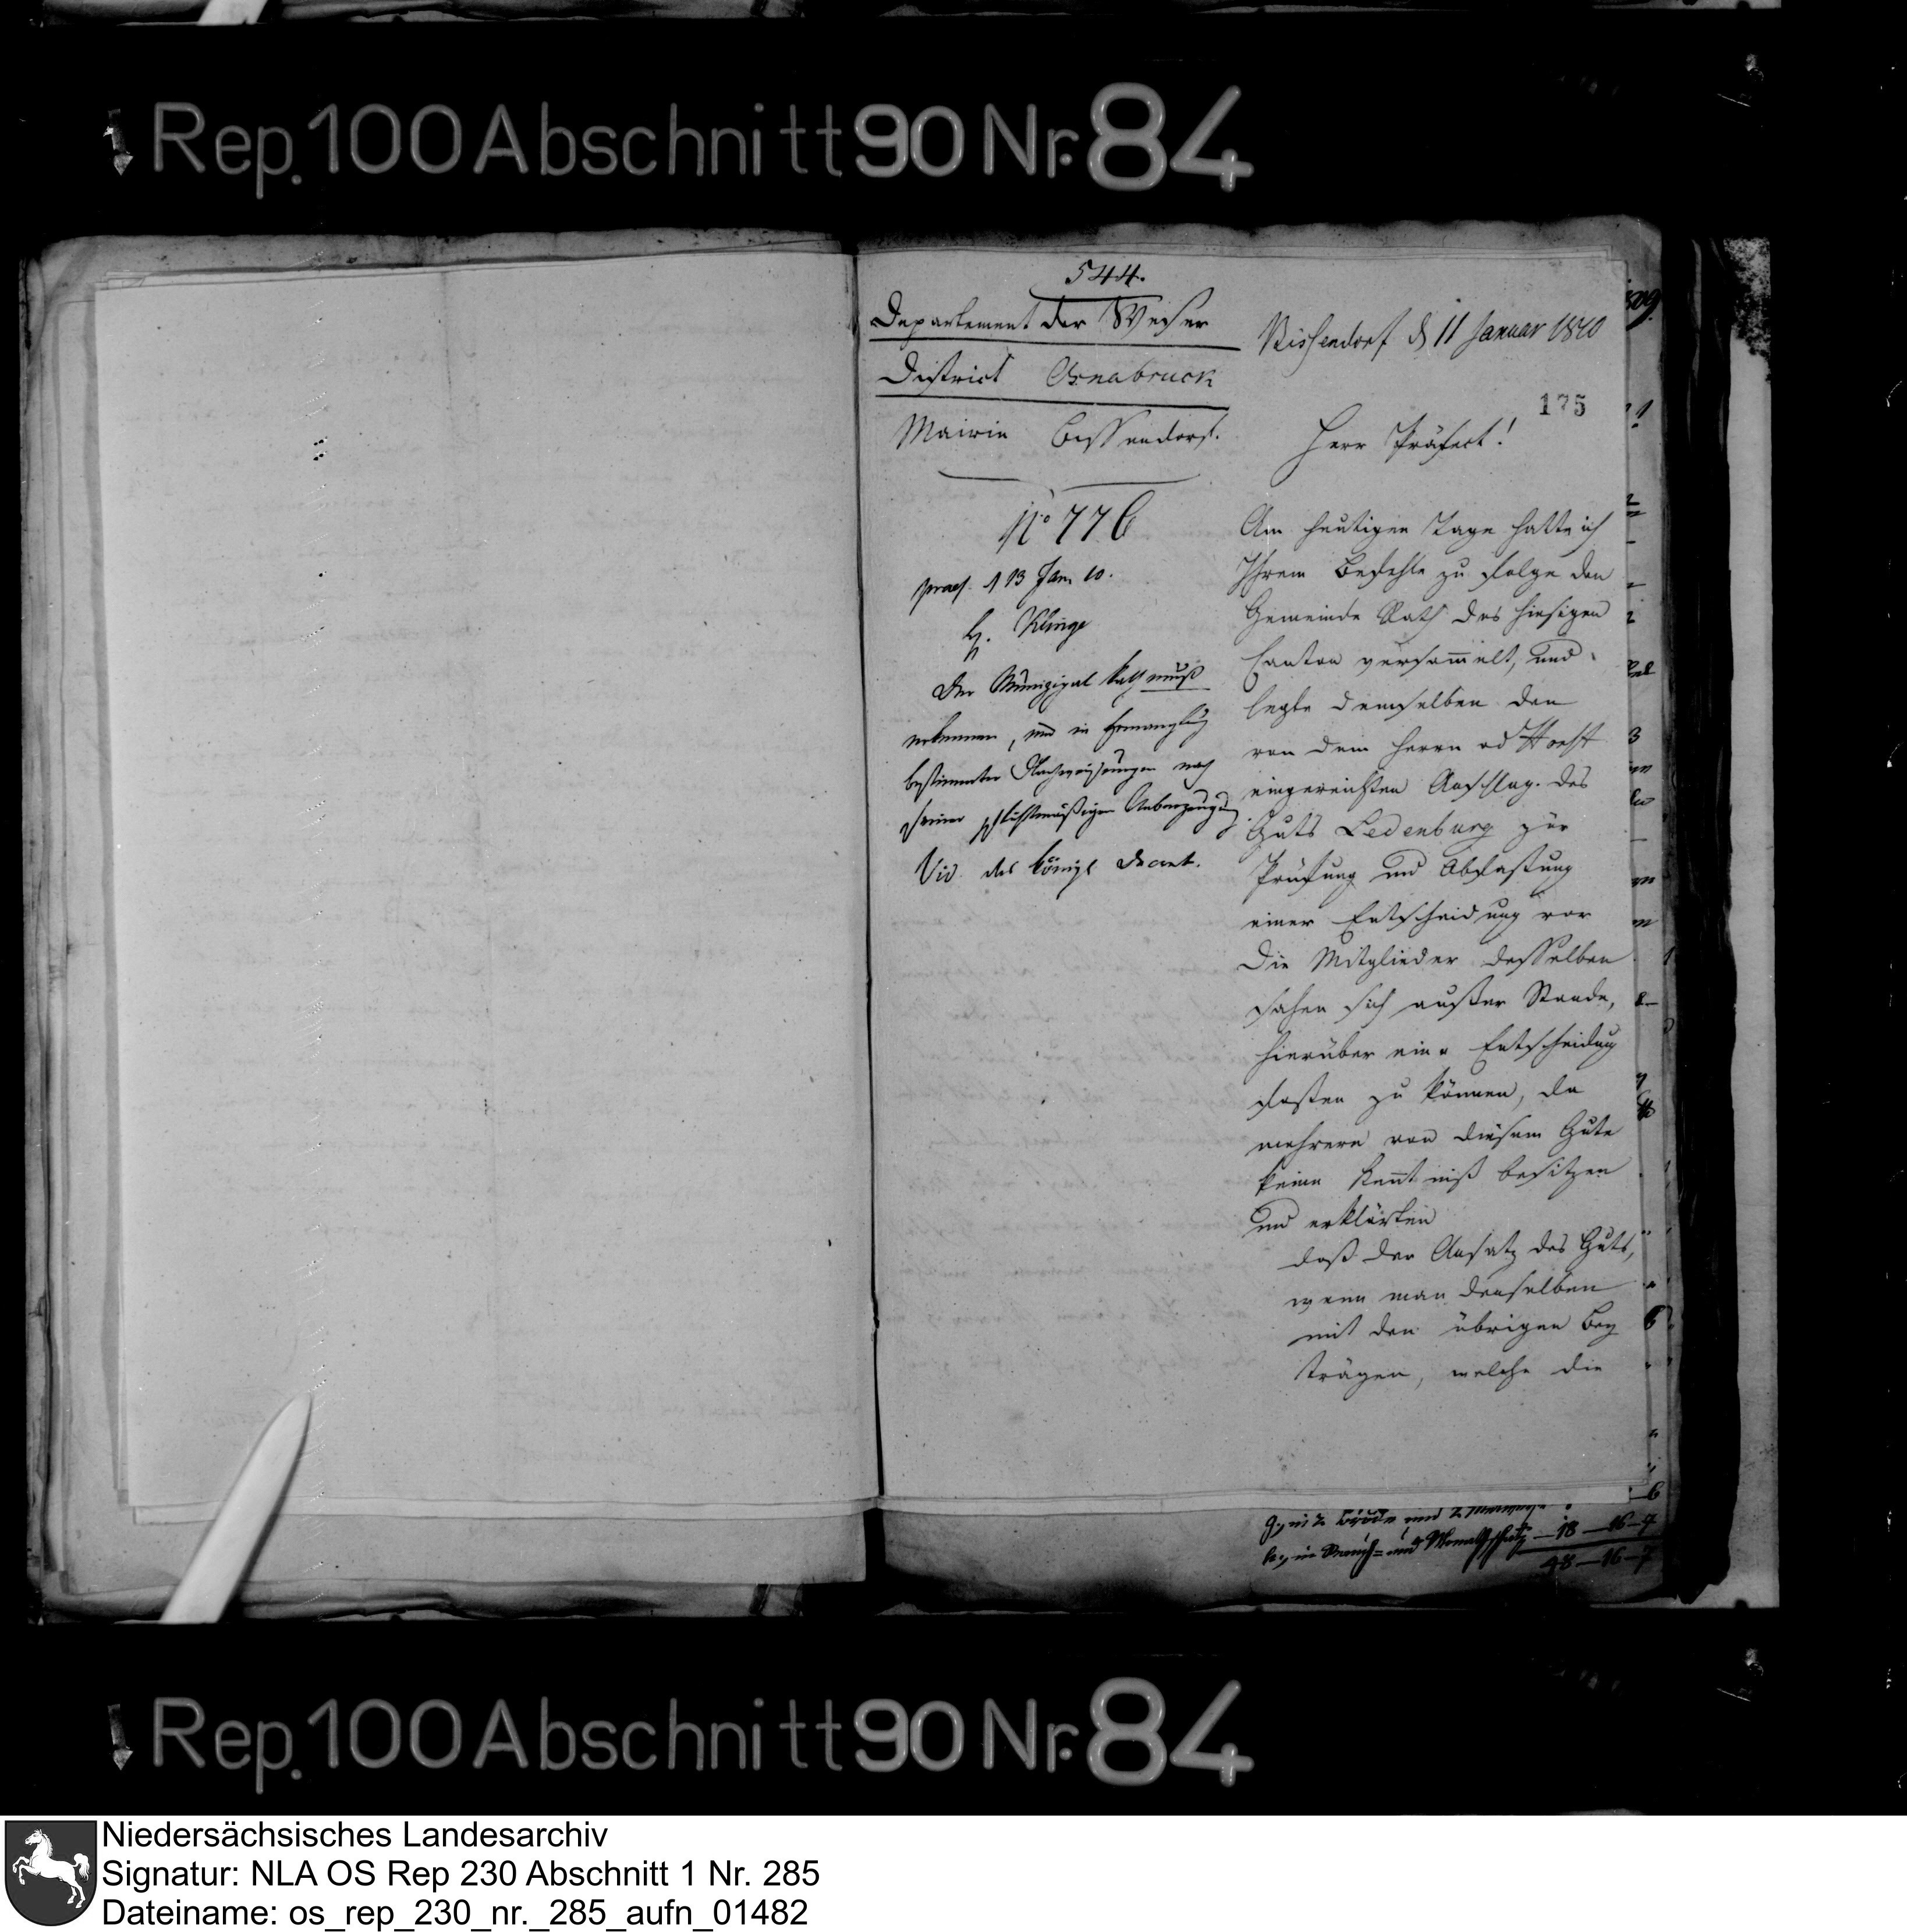 Rep. 100 Abschnitt 90 Nr. 84
544.
Departement der Weser
District Osnabruck
Mairie Bissendorf.
No 776
praes. d 13 Jan 10.
H. Klinge
Der Munizipal Rath muß
erkennen, und in Ermanglung
bestimmter Nachweisungen nach
seiner pflichtmäßigen Ueberzeugung.
Vid. das königl Decret.
Bissendorf d 11 Januar 1810
175
Herr Präfect!
Am heutigen Tage hatte ich
Ihrem Befehle zu folge den
Gemeinde Rath des hiesigen
Canton versammelt, und
legte demselben den
von dem Herrn
eingereichten Anschlag des
Guts Ledenburg zur
Prüfung und Abfassung
einer Entscheidung vor
Die Mitglieder desselben
sahen sich außer Stande,
hierüber eine Entscheidung
fassen zu können, da
mehrere von diesem Gute
keine Kenntniß besitzen
und erklärten
daß der Ansatz des Guts,
wenn man denselben
mit den übrigen Bey
trägen, welche die
und Monathschatz — 18 — 16 — 7
48 — 16 — 7
Rep. 100 Abschnitt 90 Nr. 84
Niedersächsisches Landesarchiv
Signatur: NLA OS Rep 230 Abschnitt 1 Nr. 285
Dateiname: os_rep_230_nr._285_aufn_01482